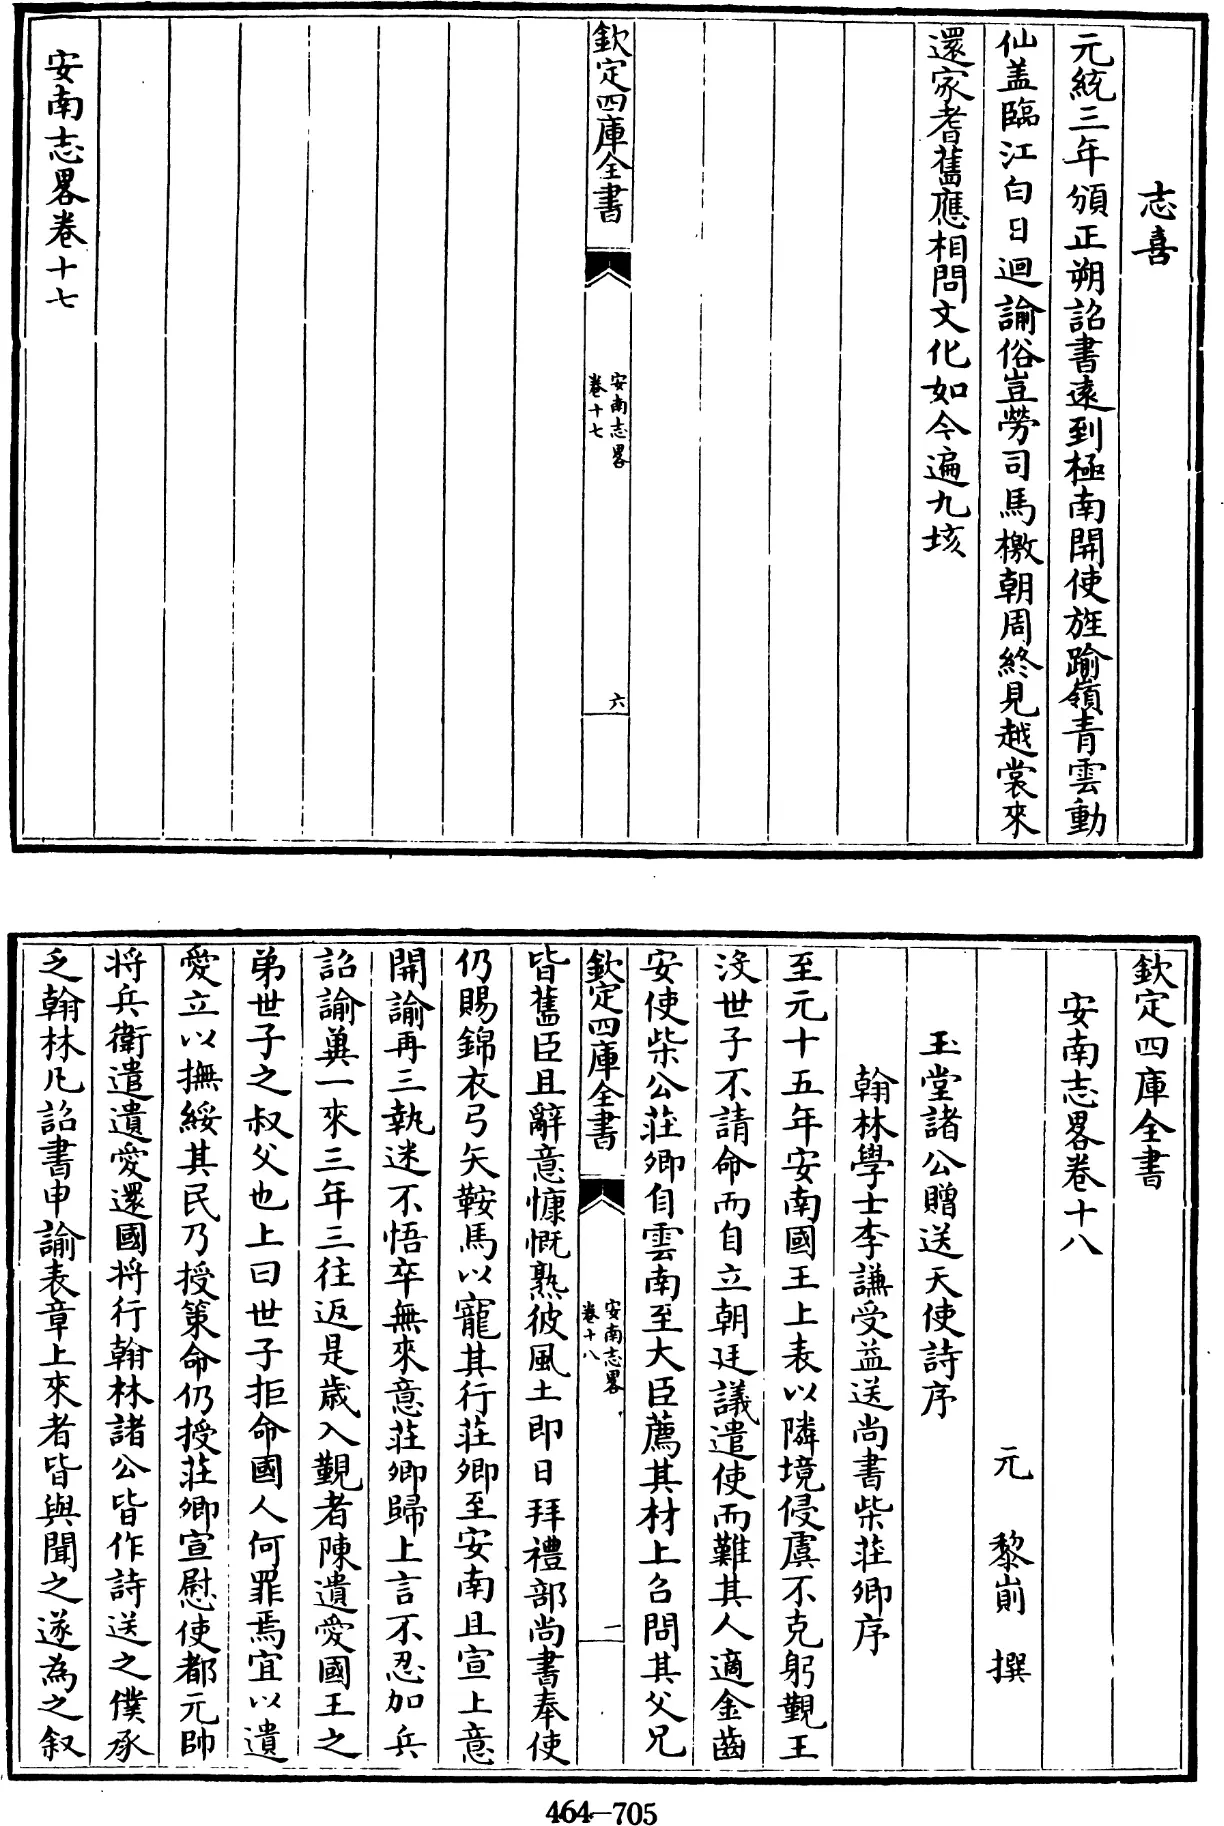 志喜
元統三年頒正朔詔書遠到極南開使旌踰嶺青雲動
仙盖臨江白日迴諭俗豈勞司馬檄朝周終見越裳來
還家耆舊應相問文化如今遍九垓
欽定四庫全書
安南志畧
卷十七
六
安南志畧卷十七
欽定四庫全書
安南志畧卷十八
元 黎崱 撰
玉堂諸公贈送天使詩序
翰林學士李謙受益送尚書柴莊卿序
至元十五年安南國王上表以隣境侵虞不克躬覲王
没世子不請命而自立朝廷議遣使而難其人適金齒
安使柴公莊卿自雲南至大臣薦其材上召問其父兄
欽定四庫全書
安南志畧
卷十八
一
皆舊臣且辭意慷慨熟彼風土即日拜禮部尚書奉使
仍賜錦衣弓矢鞍馬以寵其行莊卿至安南且宣上意
開諭再三執迷不悟卒無來意莊卿歸上言不忍加兵
詔諭兾一來三年三往返是歲入覲者陳遺愛國王之
弟世子之叔父也上曰世子拒命國人何罪焉宜以遺
愛立以撫綏其民乃授策命仍授莊卿宣慰使都元帥
将兵衛遣遺愛還國将行翰林諸公皆作詩送之僕承
乏翰林凡詔書申諭表章上來者皆與聞之遂為之叙
464—705